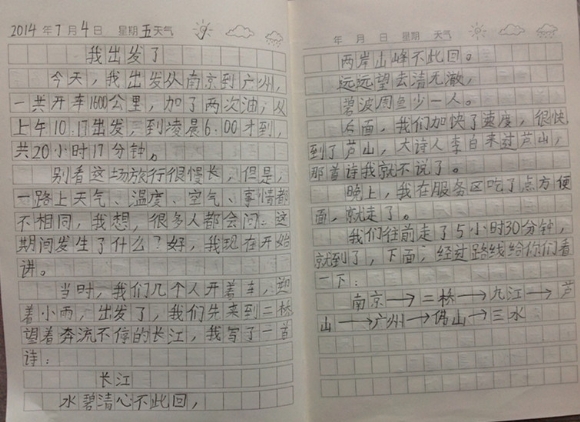 2014年7月4日 星期五天气
我出发了
今天,我出发从南京到广州,
一共开车1600公里,加了两次油,从
上午10.17出发,到凌晨6.00才到,
共20小时17分钟。
别看这场旅行很慢长,但是,
一路上天气、温度、空气、事情都
不相同,我想,很多人都会问:这
期间发生了什么?好,我现在开始
讲。
当时,我们几个人开着车,迎
着小雨,出发了,我们先来到二桥
望着奔流不停的长江,我写了一首
诗:
长江
水碧清心不此回,
年 月 日 星期 天气
两岸山峰不此回。
远远望去清无澈,
碧波周鱼少一人。
后面,我们加快了速度,很快
到了芦山,大诗人李白来过芦山,
那首诗我就不说了。
晚上,我在服务区吃了点方便
面,就走了。
我们往前走了5小时30分钟,
就到了,下面,经过路线给你们看
一下:
南京→二桥→九江→芦
山→广州→佛山→三水